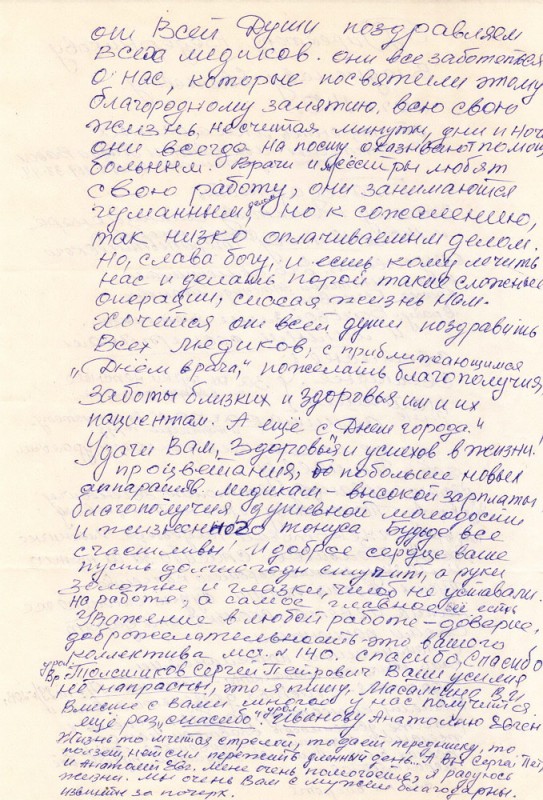 от всей Души поздравляем
Всех медиков. они все заботятся
о нас, которые посвятили этому
благородному занятию. всю свою
жизнь, не считая минутки, дни и ночи
они всегда на посту оказывают помощь
больным. Врачи и мёсстры любят
свою работу, они занимаются
гуманным делом, но к сожалению,
так низко оплачиваемым делом.
Но, слава богу, и есть кому лечить
нас и делать порой такие сложные
операции, спасая жизнь нам.
Хочется от всей души поздравить
Всех медиков, с приближающимся
„Днём врача," пожелать благополучия,
Заботы близких и здоровья им и их
пациентам. А ещё с Днем города."
Удачи Вам, Здоровья и успехов в жизни!
процветания, побольше новых
аппаратов, медикам - высокой зарплаты
благополучия душевной молодости
и жизненного тонуса Будьте все
счастливы! И доброе сердце ваше
пусть долгие годы стучит, а руки
золотые и глазки, чтоб не уставали
на работе, а самое главное и есть
Уважение в любой работе - доверие,
доброжелательность это вашего
коллектива мсч. N 140. спасибо, Спасибо
Вр. урол. Полстиков Сергей Петрович Ваши усилия
не напрасны, это я пишу. Масалкина В.И
Вместе с вами многое у нас получится
ещё раз „спасибо", урол. Иванову Анатолию Евген
Жизнь то мчится стрелой, то даст передышку, то
ползет, нет сил пережить длинный день... А Вы Сергей Пет,
и Анатолий Евг. мене очень помогаете, я радуюсь
жизни. Мы очень Вам с мужем благодарны.
извинти за почерк.